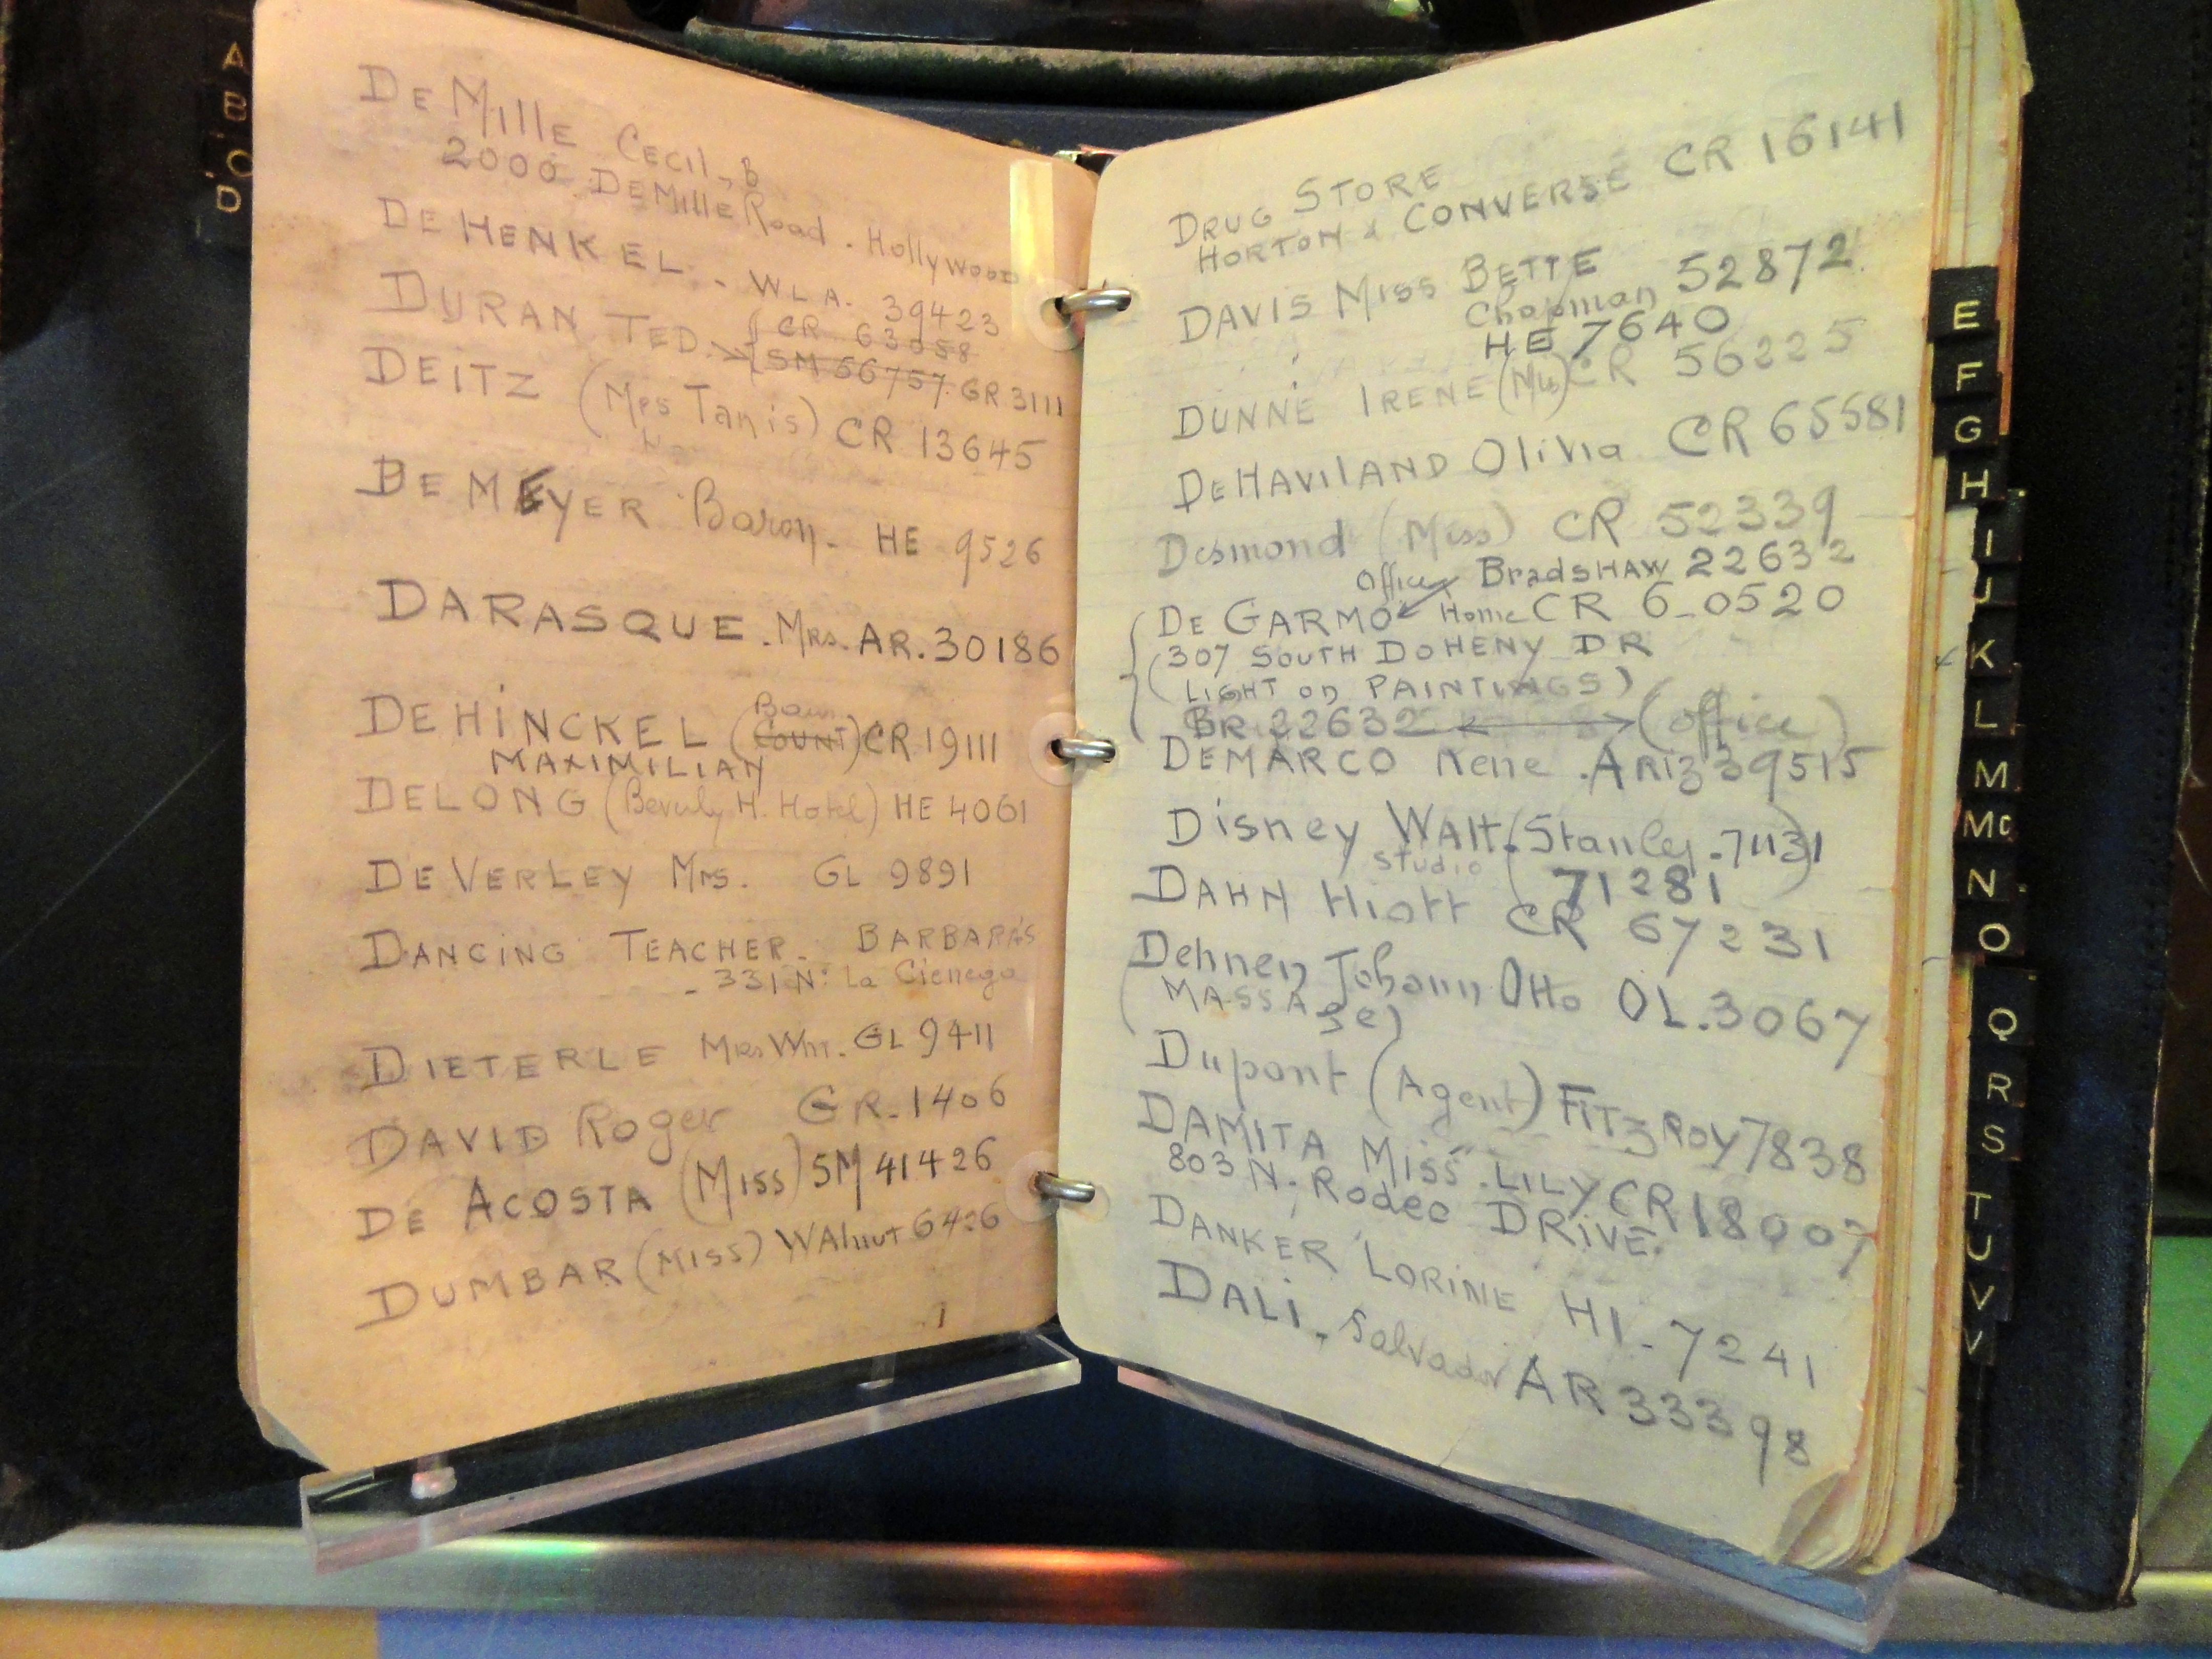 A
B
C
D
DEMILLE CECIL, B
2000 DEMILLE Road. Hollywood
DE HENKEL. - WLA. 39423
DURAN TED. CR 63058
SM 56757 GR 3111
DEITZ (Mrs Tanis) CR 13645
DE MEYER Baron. HE 9526
DARASQUE. Mrs. AR. 30186
Baron
DEHINCKEL (COUNT) CR 19111
MAXIMILIAN
DELONG (Beverly H. Hotel) HE 4061
DE VERLEY Mrs. GL 9891
DANCING TEACHER. BARBARA'S
- 331 N. La Cienega
DIETERLE Mrs Wm. GL 9411
DAVID Roger GR. 1406
DE ACOSTA (MISS) SM 41426
DUMBAR (MISS) WALNUT 6426
DRUG STORE
HORTON & CONVERSE CR 16141
DAVIS MISS BETTE 52872
Chapman
HE 7640
DUNNE IRENE (Mis) CR 56225
DEHAVILAND Olivia CR 65581
Desmond (Miss) CR 52339
Office BradSHAW 22632
DE GARMO Home CR 6-0520
307 SOUTH DOHENY DR
(LIGHT on PAINTINGS)
BR 22632 (office)
DEMARCO Rene . ARIZ 39515
Disney WALT. (Stanley. 71131
Studio 71281)
DAHN Hiatt CR 67231
Dehnen Johann Otto OL. 3067
(MASSAge)
Dupont (Agent) FITZROY 7838
DAMITA MISS. LILY CR 18007
803 N. Rodeo DRIVE.
DANKER LORINE HI. 7241
DALI. Salvador AR 33398
E
F
G
H
I
J
K
L
M
Mc
N
O
Q
R
S
T
U
V